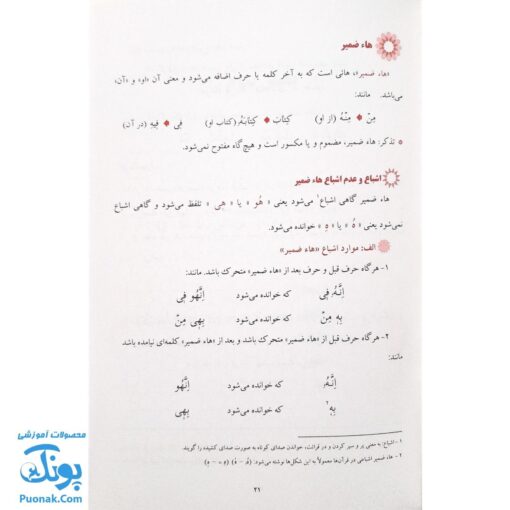 هاء ضمیر
«هاء ضمیر»، هائی است که به آخر کلمه یا حرف اضافه می‌شود و معنی آن «او» و «آن»
می‌باشد. مانند:
مِنْ ♦ مِنْهُ (از او) کِتابَ ♦ کِتابَهُ (کتاب او) فی ♦ فیهِ (در آن)
* تذکر: هاء ضمیر، مضموم و یا مکسور است و هیچ‌گاه مفتوح نمی‌شود.
اشباع و عدم اشباع هاء ضمیر
هاء ضمیر گاهی اشباع۱ می‌شود یعنی «هُو» یا «هِی» تلفظ می‌شود و گاهی اشباع
نمی‌شود یعنی «هُ» یا «هِ» خوانده می‌شود.
الف: موارد اشباع «هاء ضمیر»
۱- هرگاه حرف قبل و حرف بعد از «هاء ضمیر» متحرک باشد. مانند:
اِنَّهُ فی که خوانده می‌شود اِنَّهُو فی
بِهِ مِنْ که خوانده می‌شود بِهِی مِنْ
۲- هرگاه حرف قبل از «هاء ضمیر» متحرک باشد و بعد از «هاء ضمیر» کلمه‌ای نیامده باشد
مانند:
اِنَّهُ که خوانده می‌شود اِنَّهُو
بِهِ۲ که خوانده می‌شود بِهِی
۱- اشباع: به معنی پر و سیر کردن و در قرائت، خواندن صدای کوتاه به صورت صدای کشیده را گویند.
۲- هاء ضمیر اشباعی در قرآن‌ها معمولاً به این شکل‌ها نوشته می‌شود:
۲۱
محصولات آموزشی
پونک
Puonak.Com